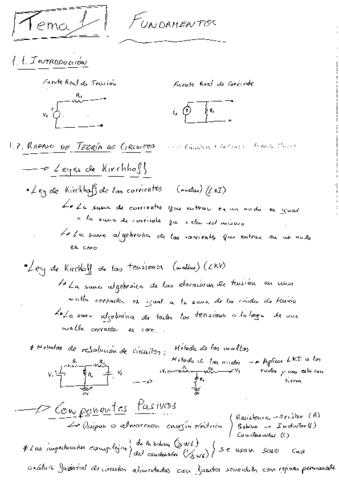 Tema 1 FUNDAMENTOS
1.1. INTRODUCCIÓN
Fuente Real de Tensión
Fuente Real de Corriente
1.2. REPASO DE TEORÍA DE CIRCUITOS
Leyes de Kirchhoff
• Ley de Kirchhoff de las corrientes (nudos) (LKI)
La suma de corrientes que entran en un nudo es igual
a la suma de corriente que salen del mismo
La suma algebraica de las corrientes que entran en un nudo
es cero
• Ley de Kirchhoff de las tensiones (mallas) (LKV)
La suma algebraica de las elevaciones de tensión en una
malla cerrada, es igual a la suma de las caídas de tensión
La suma algebraica de todas las tensiones a lo largo de una
malla cerrada es cero.
* Métodos de resolución de circuitos: Método de las mallas
Método de los nudos → Aplicar LKI a los
nudos y uno esta con
tierra
Componentes Pasivos
Disipan o almacenan energía eléctrica
Resistencia - Resistor (R)
Bobina - Inductor (L)
Condensador (C)
* Las impedancias complejas de la bobina (jωL)
del condensador (1/jωC) se usan solo en el
análisis fasorial de circuitos alimentados con fuentes senoidales con régimen permanente